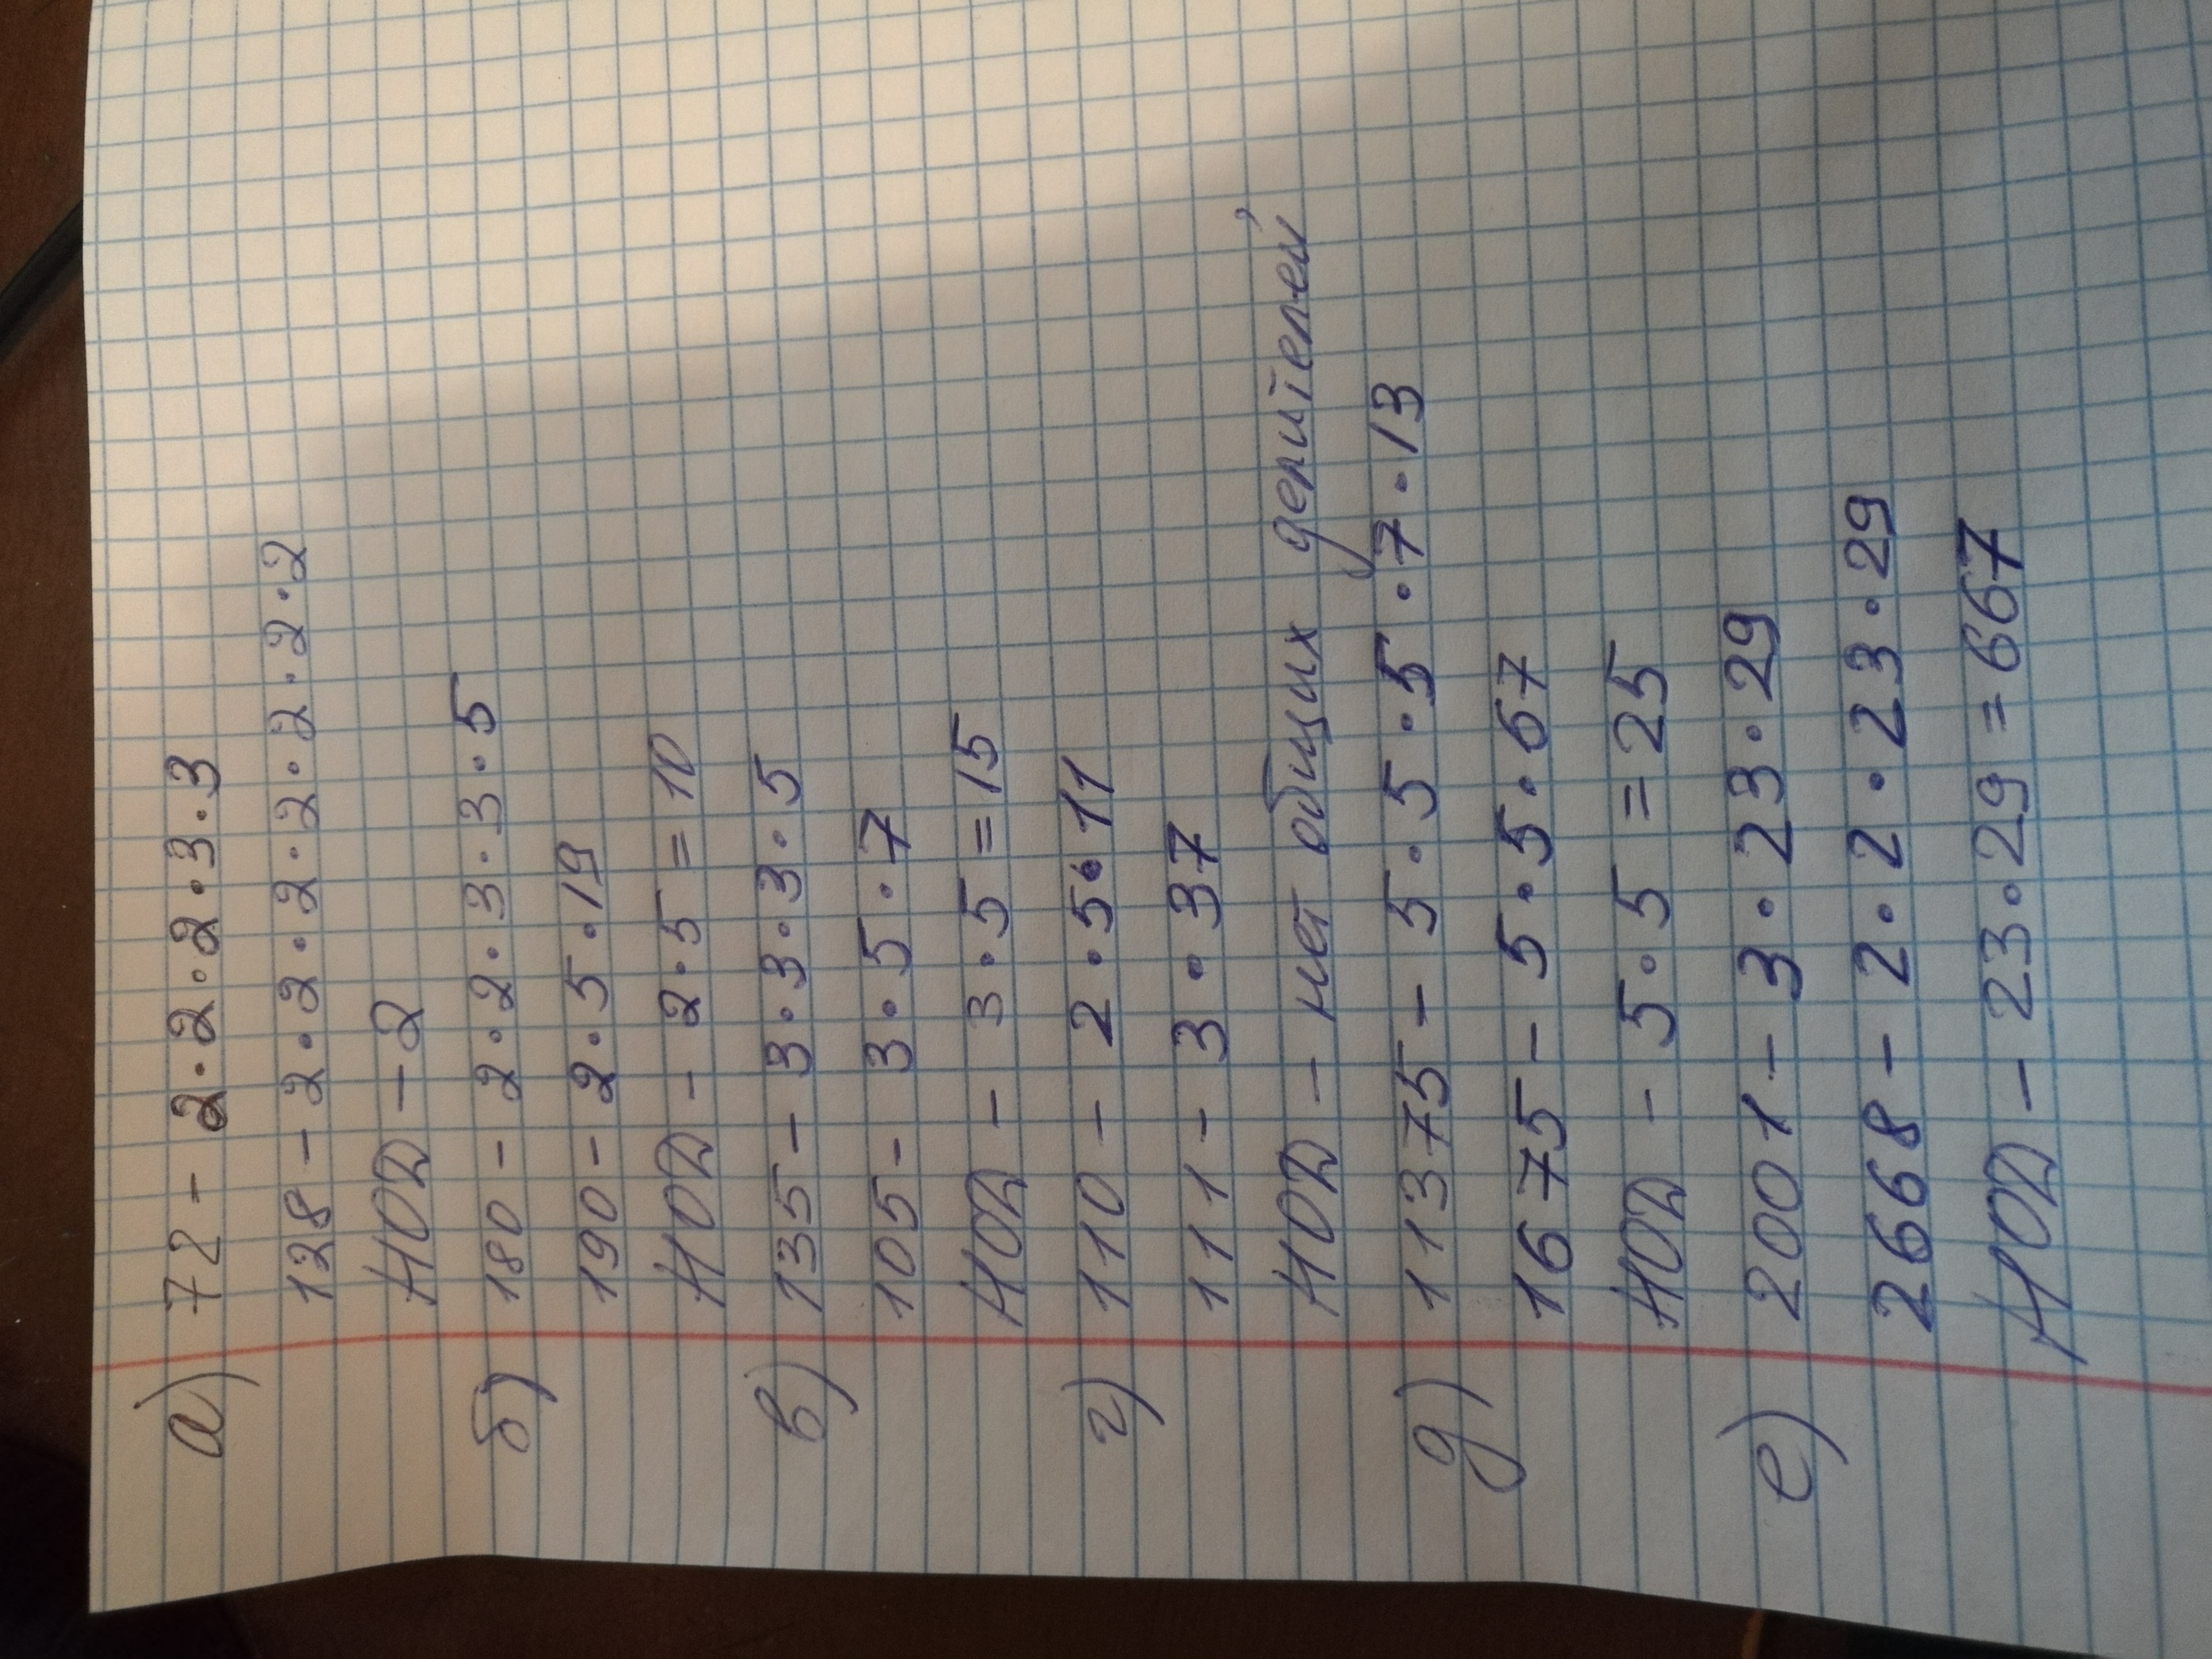 а) 72 - 2·2·2·3·3
128 - 2·2·2·2·2·2·2
НОД - 2
б) 180 - 2·2·3·3·5
190 - 2·5·19
НОД - 2·5=10
в) 135 - 3·3·3·5
105 - 3·5·7
НОД - 3·5=15
г) 110 - 2·5·11
111 - 3·37
НОД - нет общих делителей
д) 11375 - 5·5·5·7·13
1675 - 5·5·67
НОД - 5·5=25
е) 2001 - 3·23·29
2668 - 2·2·23·29
НОД - 23·29=667